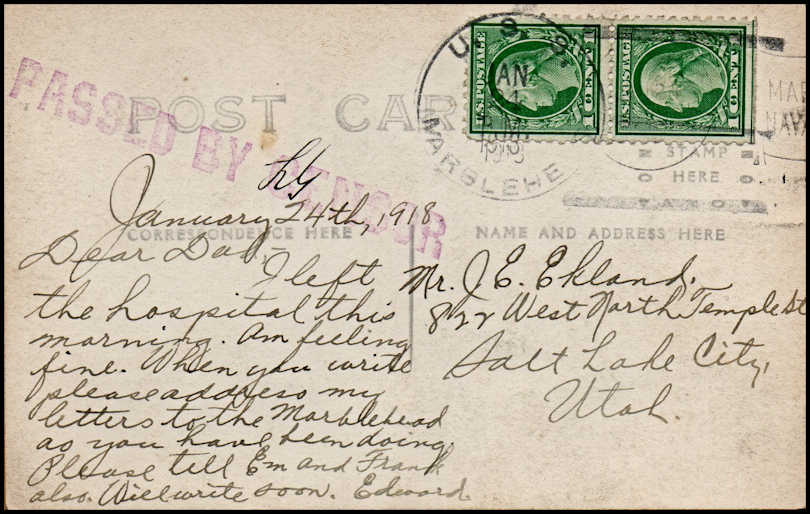 POST CAR
PASSED BY CENSOR
U.S.S.
JAN
1918
MARBLEHE
U.S. POSTAGE
1 CENT 1
U.S. POSTAGE
1 CENT 1
MAR
NAV
STAMP
HERE
CORRESPONDENCE HERE
NAME AND ADDRESS HERE
January 24th, 1918
Dear Dad,
I left
the hospital this
morning. Am feeling
fine. When you write
please address my
letters to the Marblehead
as you have been doing.
Please tell Em and Frank
also. Will write soon. Edward.
Mr. J. E. Ekland,
822 West North Temple St
Salt Lake City,
Utah.